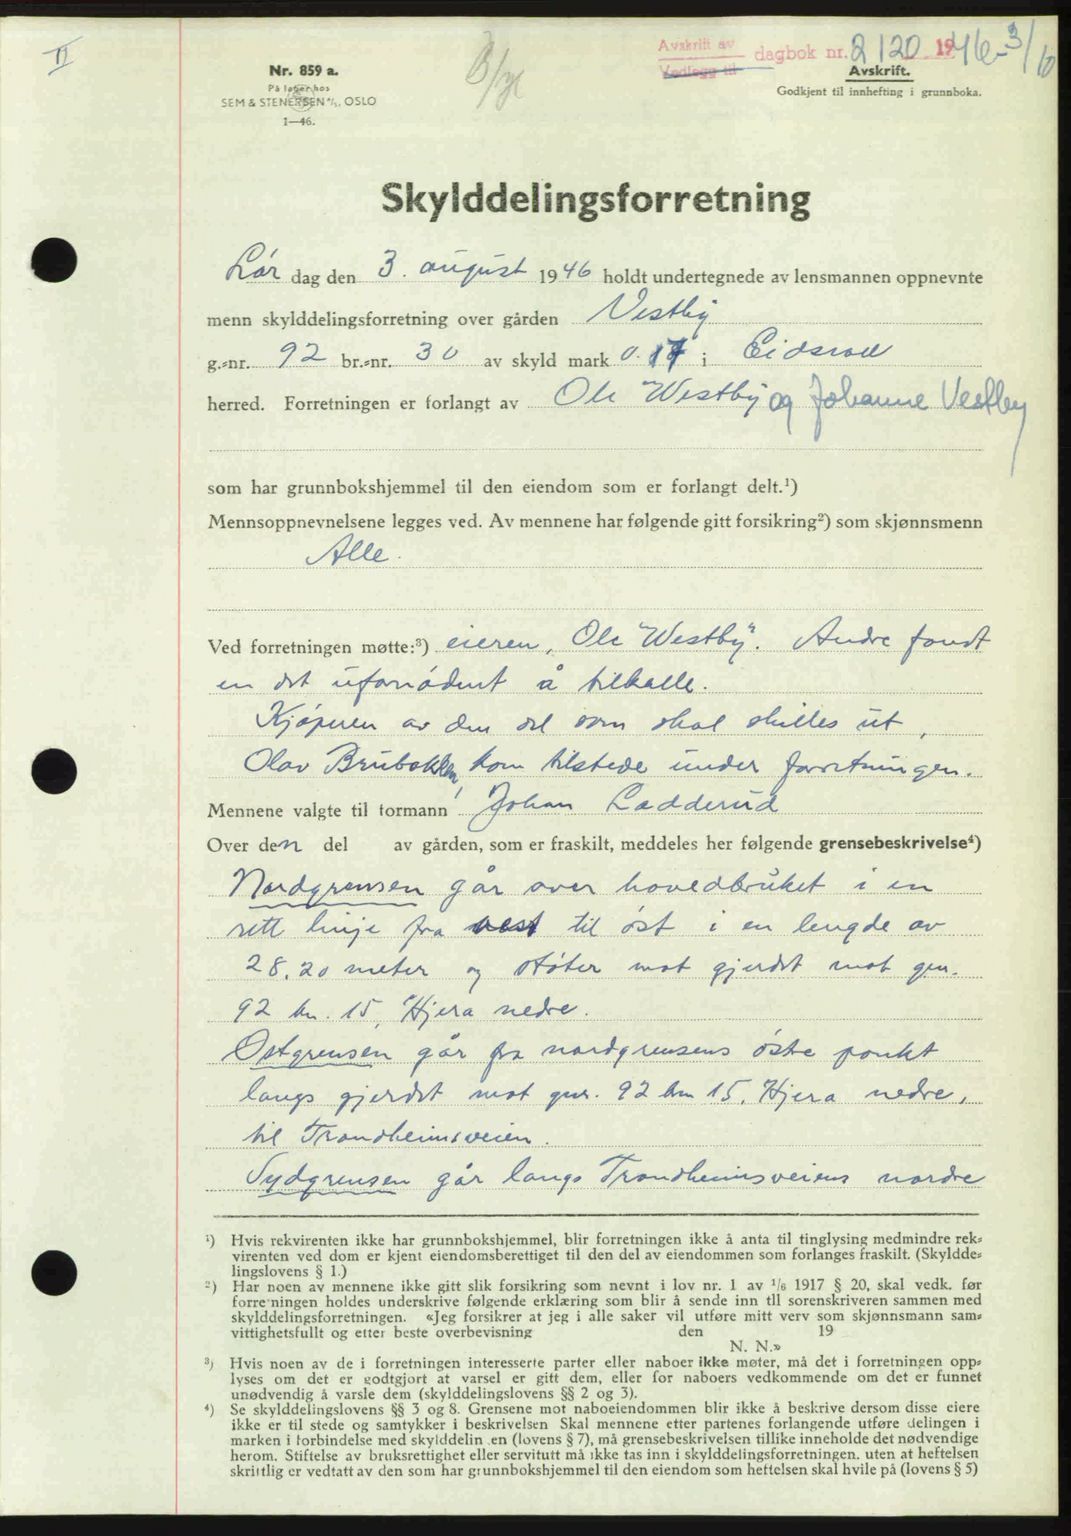 II
Avskrift av
Vedlegg til
dagbok nr. 2120 1946 - 3/10
Nr. 859 a.
På lager hos
SEM & STENERSEN A/S, OSLO
1—46.
Avskrift.
Godkjent til innhefting i grunnboka.
Skylddelingsforretning
Lør dag den 3. august 1946 holdt undertegnede av lensmannen oppnevnte
menn skylddelingsforretning over gården Vestby
g.-nr. 92 br.-nr. 30 av skyld mark 0.17 i Eidsvoll
herred. Forretningen er forlangt av Ole Westby og Johanne Vestby
som har grunnbokshjemmel til den eiendom som er forlangt delt.¹)
Mennsoppnevnelsene legges ved. Av mennene har følgende gitt forsikring²) som skjønnsmenn
Alle.
Ved forretningen møtte:³) eieren, Ole "Westby". Andre fandt
en det ufornødent å tilkalle.
Kjøperen av den del som skal skilles ut,
Olav Brubakken, kom tilstede under forretningen.
Mennene valgte til formann Johan Ladderud
Over den del av gården, som er fraskilt, meddeles her følgende grensebeskrivelse⁴)
Nordgrensen går over hovedbruket i en
rett linje fra vest til øst i en lengde av
28,20 meter og støter mot gjerdet mot gnr.
92 bn. 15, Hjera nedre.
Østgrensen går fra nordgrensens østre punkt
langs gjerdet mot gnr. 92 bn 15, Hjera nedre,
til Trondheimsveien.
Sydgrensen går langs Trondheimsveiens nordre
¹) Hvis rekvirenten ikke har grunnbokshjemmel, blir forretningen ikke å anta til tinglysing medmindre rek-
virenten ved dom er kjent eiendomsberettiget til den del av eiendommen som forlanges fraskilt. (Skyldde-
lingslovens § 1.)
²) Har noen av mennene ikke gitt slik forsikring som nevnt i lov nr. 1 av 1/6 1917 § 20, skal vedk. før
forretningen holdes underskrive følgende erklæring som blir å sende inn til sorenskriveren sammen med
skylddelingsforretningen. «Jeg forsikrer at jeg i alle saker vil utføre mitt verv som skjønnsmann sam-
vittighetsfullt og etter beste overbevisning den 19
N. N.»
³) Hvis noen av de i forretningen interesserte parter eller naboer ikke møter, må det i forretningen opp-
lyses om det er godtgjort at varsel er gitt dem, eller for naboers vedkommende om det er funnet
unødvendig å varsle dem (skylddelingslovens §§ 2 og 3).
⁴) Se skylddelingslovens §§ 3 og 8. Grensene mot naboeiendommen blir ikke å beskrive dersom disse eiere
ikke er til stede og samtykker i beskrivelsen Skal mennene etter partenes forlangende utføre delingen i
marken i forbindelse med skylddelingen (lovens § 7), må grensebeskrivelsen tillike inneholde det nødvendige
herom. Stiftelse av bruksrettighet eller servitutt må ikke tas inn i skylddelingsforretningen, uten at heftelsen
skriftlig er vedtatt av den som har grunnbokshjemmel til den eiendom som heftelsen skal hvile på (lovens § 5)